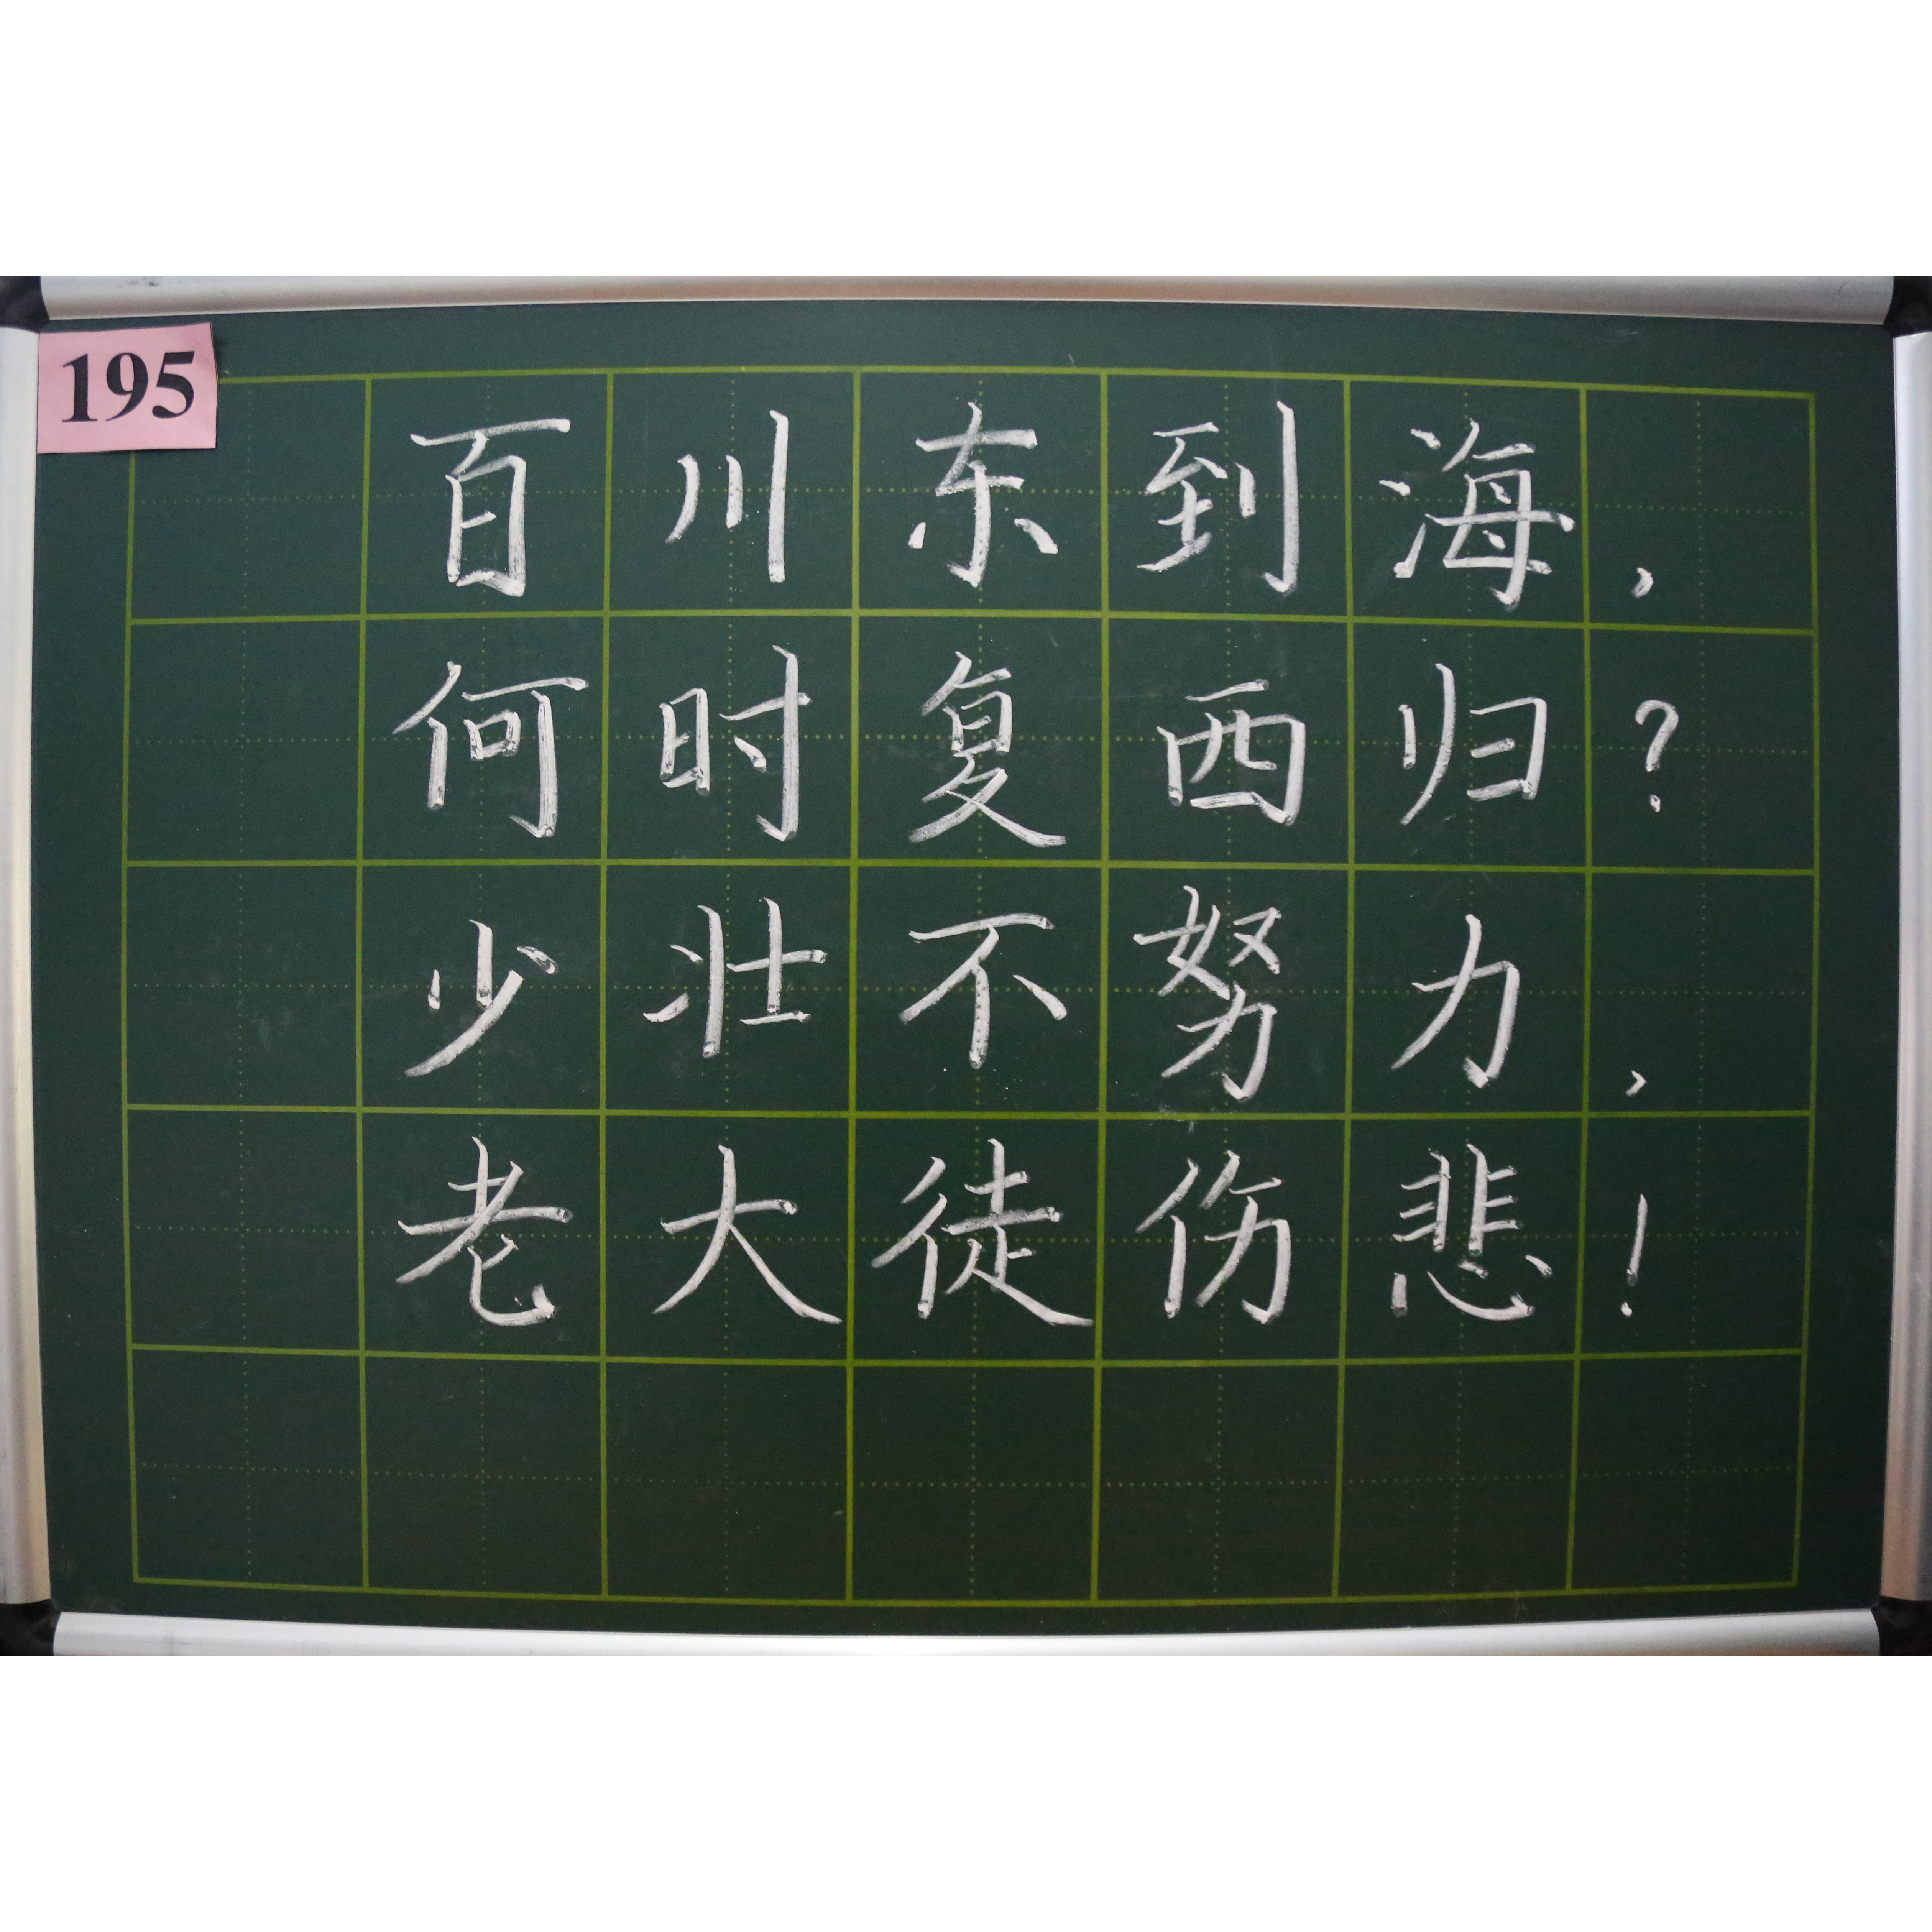 195
百川东到海，
何时复西归？
少壮不努力，
老大徒伤悲！